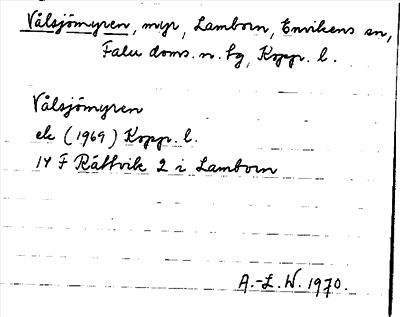 Vålsjömyren, myr, Lamborn, Envikens sn,
Falu doms. n. tg, Kopp. l.
Vålsjömyren
ek (1969) Kopp. l.
14 F Rättvik 2 i Lamborn
A.-L. W. 1970.